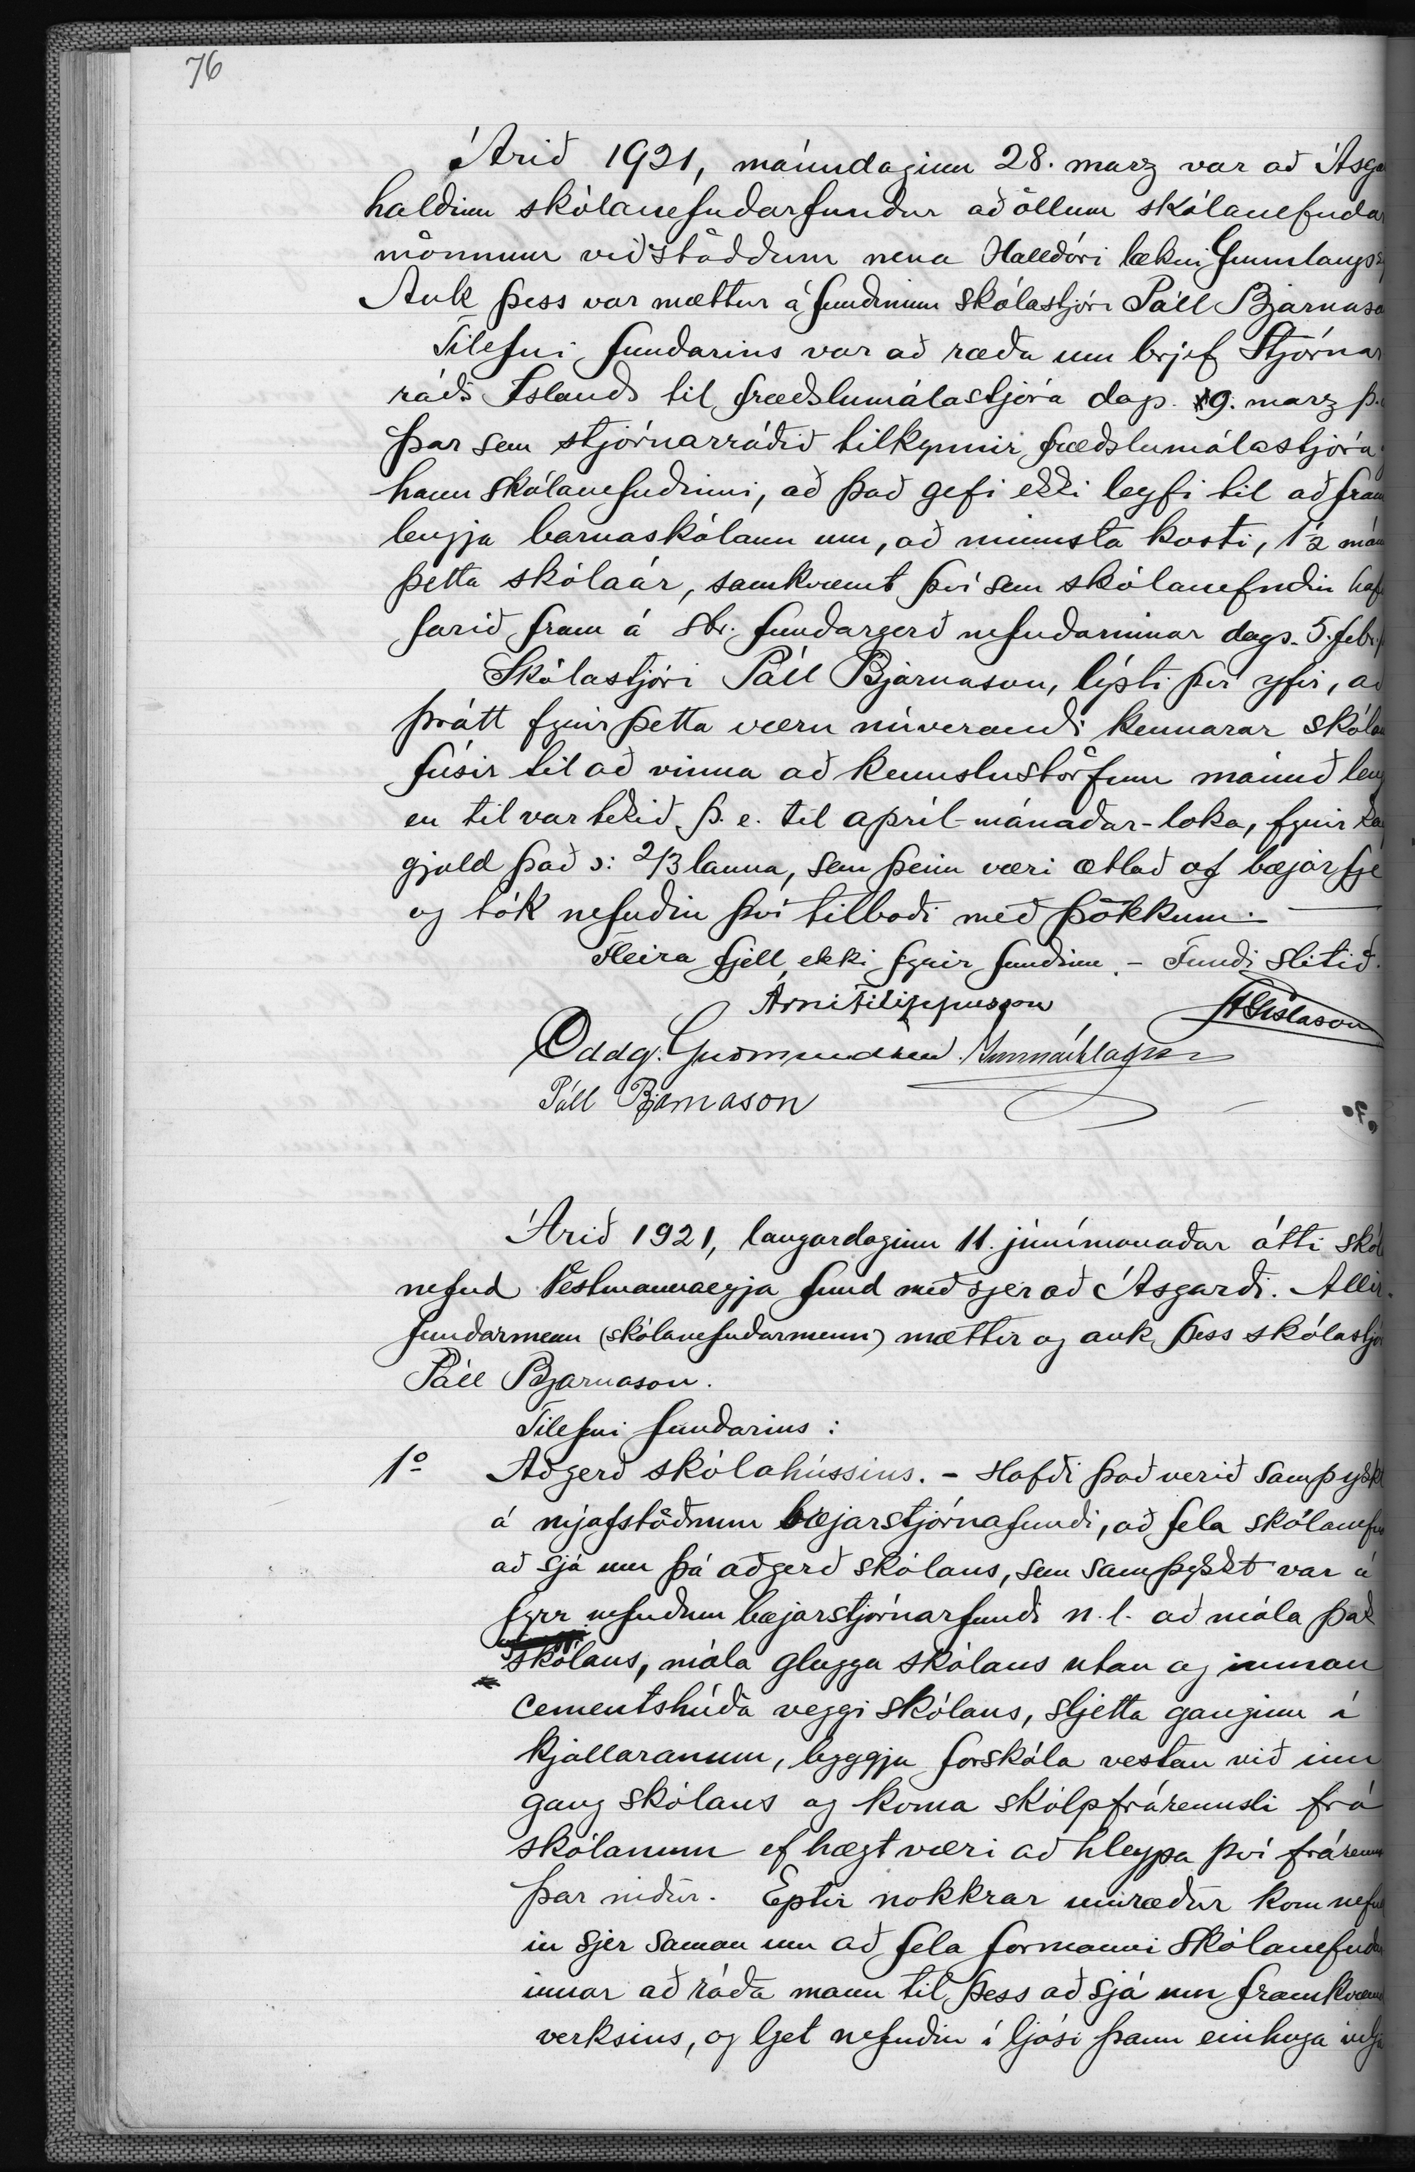 76
Árið 1921, mánudaginn 28. marz var að Ásga
haldinn skólanefndarfundur að öllum skólanefndar
mönnum viðstöddum nema Halldóri lækni Gunnlaugss
Auk þess var mættur á fundinum skólastjóri Páll Bjarnaso
Tilefni fundarins var að ræða um brjef Stjórnar
ráðs Íslands til fræðslumálastjóra dags. 9. marz þ.
þar sem stjórnarráðið tilkynnir fræðslumálastjóra
hann skólanefndinni, að það gefi ekki leyfi til að fram
lengja barnaskólann um, að minnsta kosti, 1½ mán
þetta skólaár, samkvæmt því sem skólanefndin haf
farið fram á sbr. fundargerð nefndarinnar dags. 5. febr.
Skólastjóri Páll Bjarnason, lýsti því yfir, að
þrátt fyrir þetta væru núverandi kennarar skólan
fúsir til að vinna að kennslustörfum mánuð leng
en til var tekið þ. e. til apríl-mánaðar-loka, fyrir kau
gjald það ɔ: 2/3 launa, sem þeim væri ætlað af bæjarfje
og tók nefndin því tilboði með þökkum. —
Fleira fjell ekki fyrir fundinn. — Fundi slitið.
Árni Filippusson Gíslason
Oddg. Guðmundsen Gunnar Ólafsson
Páll Bjarnason
Árið 1921, laugardaginn 11. júnímanaðar átti skól
nefnd Vestmannaeyja fund með sjer að Ásgarði. Allir
fundarmenn (skólanefndarmenn) mættir og auk þess skólastjó
Páll Bjarnason.
Tilefni fundarins:
1º Aðgerð skólahússins. – Hafði það verið samþykkt
á nýafstöðnum bæjarstjórnafundi, að fela skólanefn
að sjá um þá aðgerð skólans, sem samþykkt var á
fyrr nefndum bæjarstjórnarfundi n. l. að mála þak
skólans, mála glugga skólans utan og innan
cementshúða veggi skólans, sljetta ganginn í
kjallaranum, byggja forskála vestan við inn
gang skólans og koma skólpfrárennsli frá
skólanum ef hægt væri að hleypa því frárenn
þar niður. Eptir nokkrar umræður kom nefnd
in sjer saman um að fela formanni skólanefndar
innar að ráða mann til þess að sjá um framkvæmd
verksins, og ljet nefndin í ljósi þann einhuga vilja